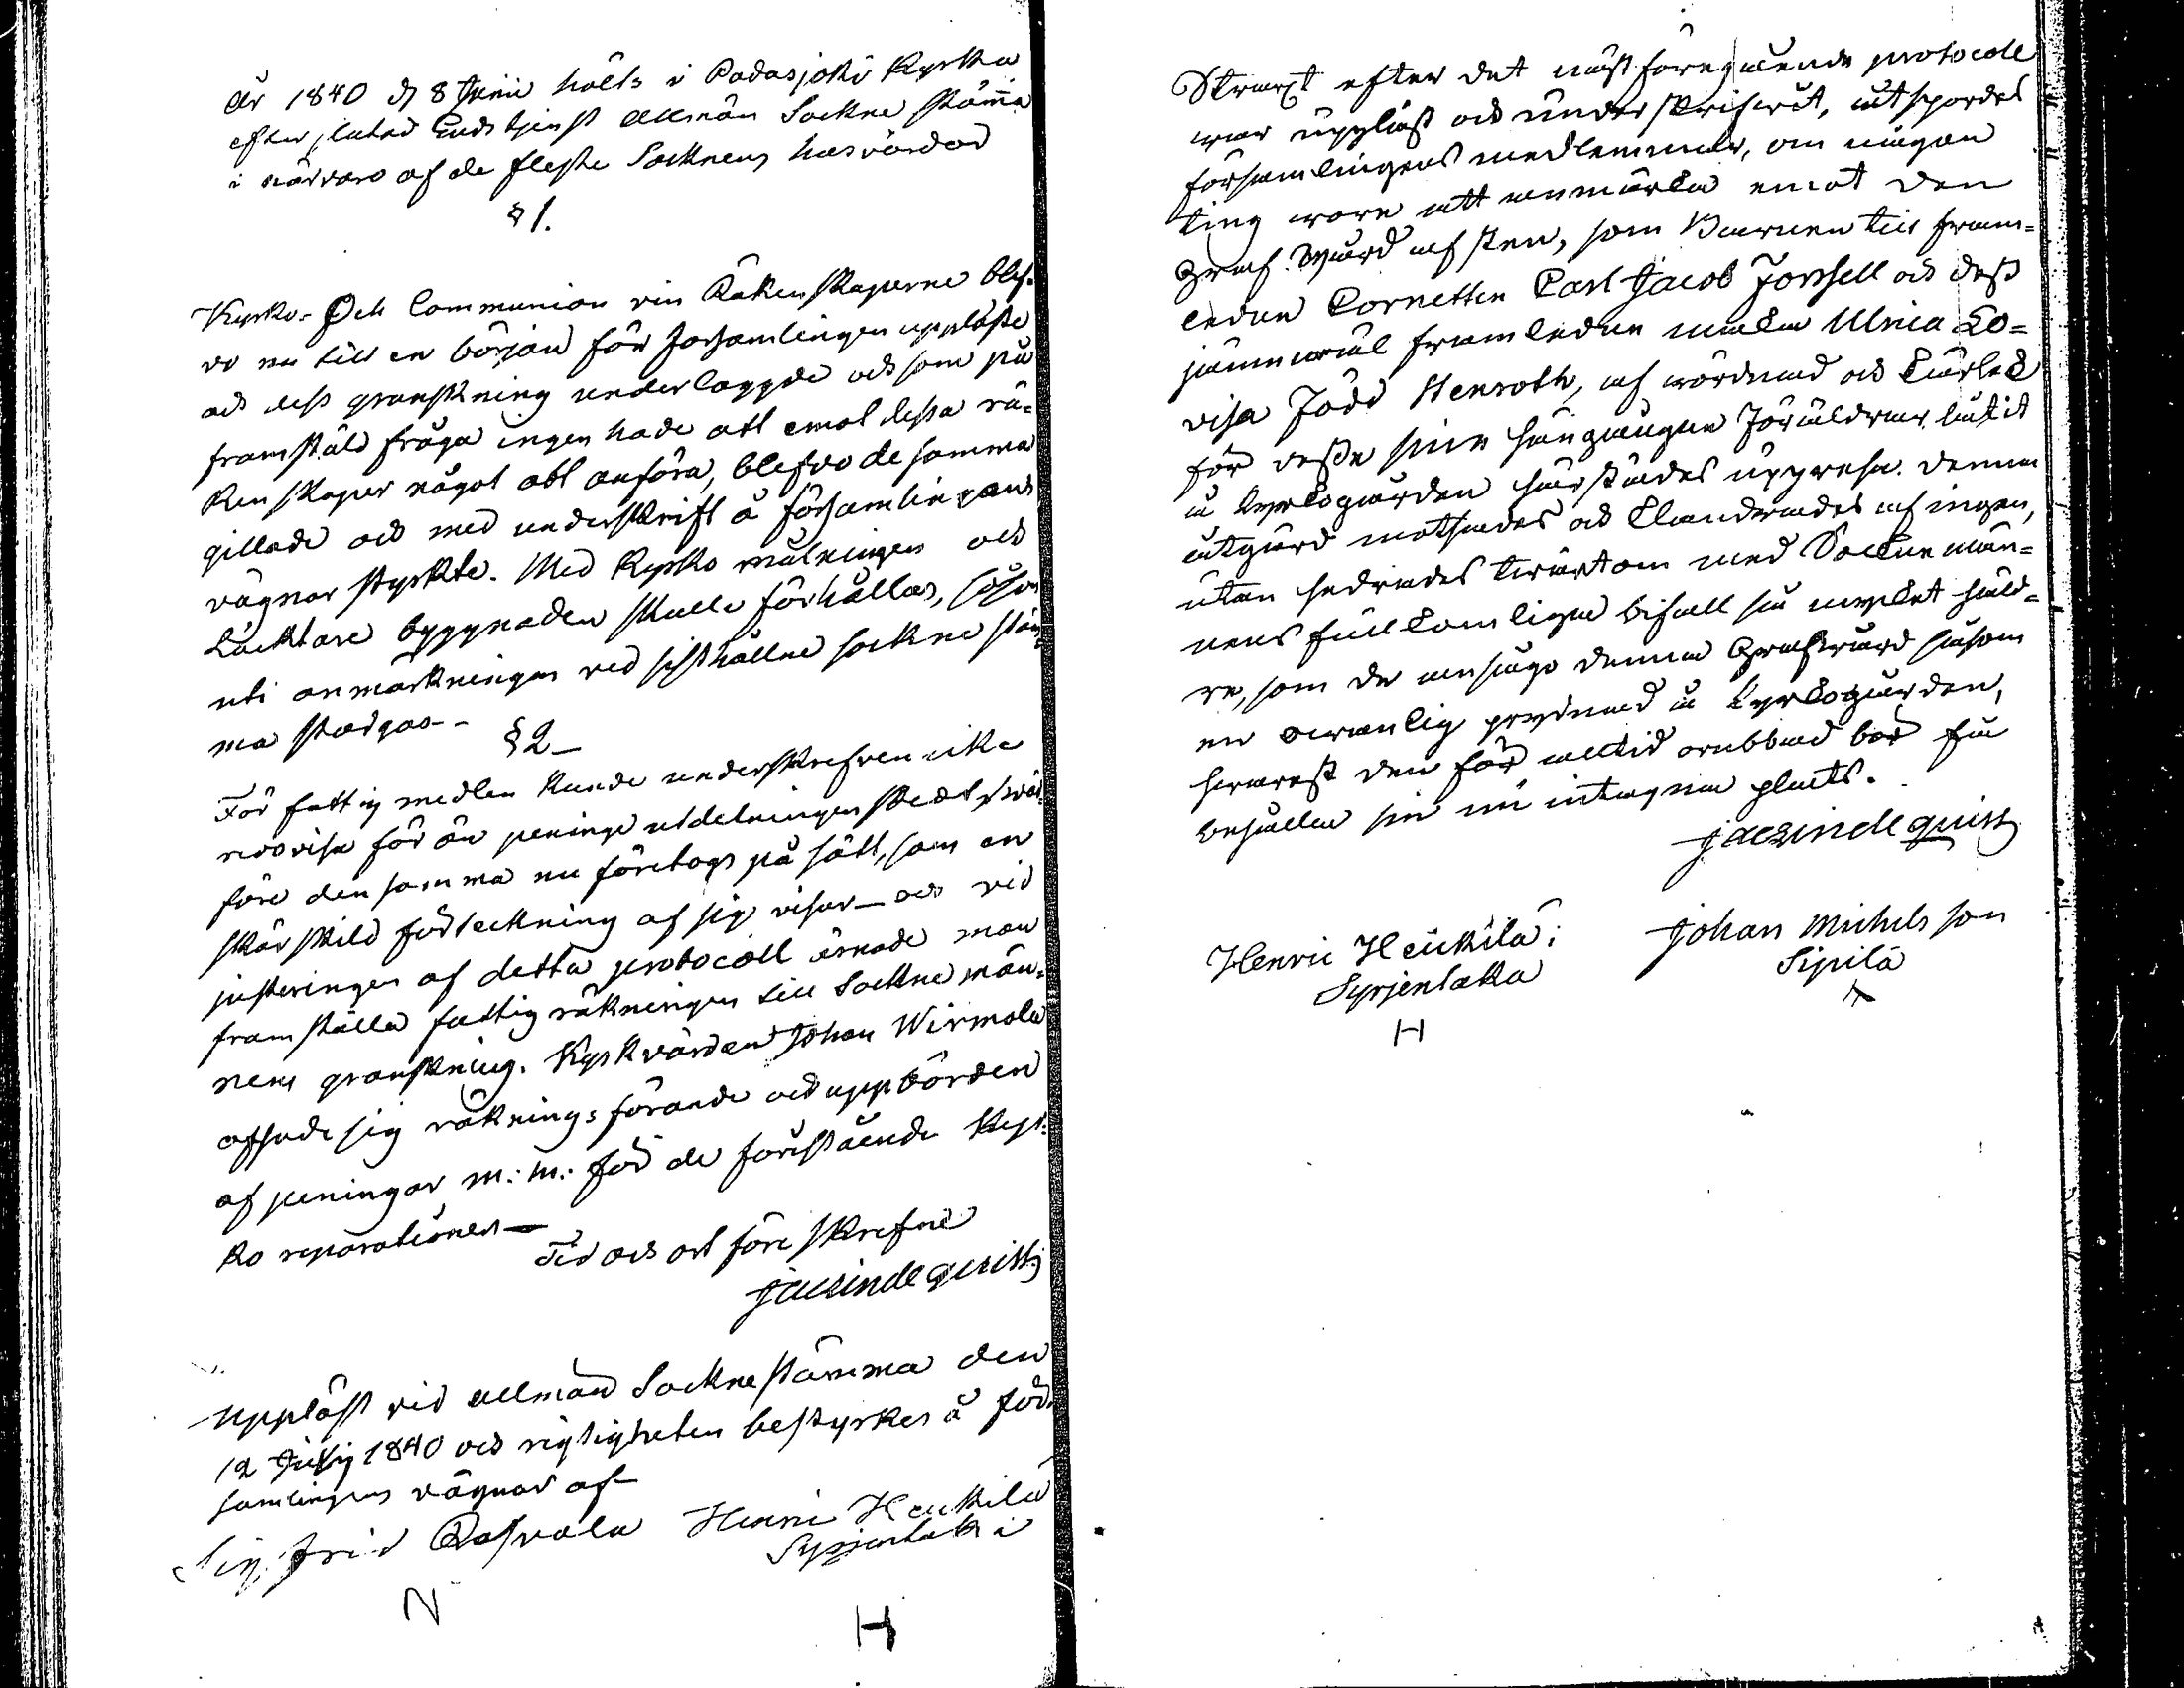 År 1840 d 8 Junii hölts i Padasjoki Kyrka
efter slutad Gudstjenst allmän Sockne stämma
i närvaro af de fleste Socknens husvärdar
§ 1.
Kyrko- Och Communion vin Räkenskaperne blef-
vo nu till en början för Församlingen uppläste
och dess granskning underlaggde och som på
framstäld fråga ingen hade att emot dessa rä-
kenskaper något att anföra, blefvo de samma
gillade och med underskrift å församlingens
vägnar styrkte. Med Kyrko målningen och
Läcktare byggnaden skulle förhållas, såsom
uti anmärkningen vid sisthållne sockne stäm-
ma stadgas--
§ 2_
För fattig medlen kunde underskrefven icke
redovisa för än peninge utdelningen skedt, hvar
före den samma nu företogs på sätt, som en
särskild förteckning af sig visar_ och vid
justeringen af detta protocoll ärnade man
framställa fattig räkningen till Sockne män-
nens granskning. Kyrkvärden Johan Wirmola
afsade sig räknings förande och uppbörden
af peningar m: m: för de förestående kyr-
ko reparationen —
Tid och ort före skrefne
J Aczindelquist
Uppläst vid allmän Sockne stämma den
12 Julij 1840 och rigtigheten bestyrkes å för-
samlingens vägnar af
Sigfrid Rasvala Henric Heickilä
Syrjentaka
N H
Straxt efter det näst föregående protocoll
war uppläst och underskrifwit, utspordes
församlingens medlemmar, om någon
ting wore att anmärka emot den
Graf. Wård af sten, som Barnen till fram-
ledne Cornetten Carl Jacob Forssell och dess
jämwäl framledne maka Ulrica Lo-
visa Född Stenroth, af wördnad och kärlek
för desse sine hängångne Föräldrar låtit
å kyrkogården härstädes uppresa. Denna
åtgärd motsades och klandrades af ingen,
utan hedrades twärtom med Sockne män-
nens fullkomliga bifall så mycket häld-
re, som de ansågo denna Grafwård såsom
en owanlig prydnad å kyrkogården,
hwarest den för alltid orubbad bör få
behålla sin nu intagna plats.
J Aczindelquist
Henric Heickilä; Johan Michels son
Syrjentaka Sipilä
H